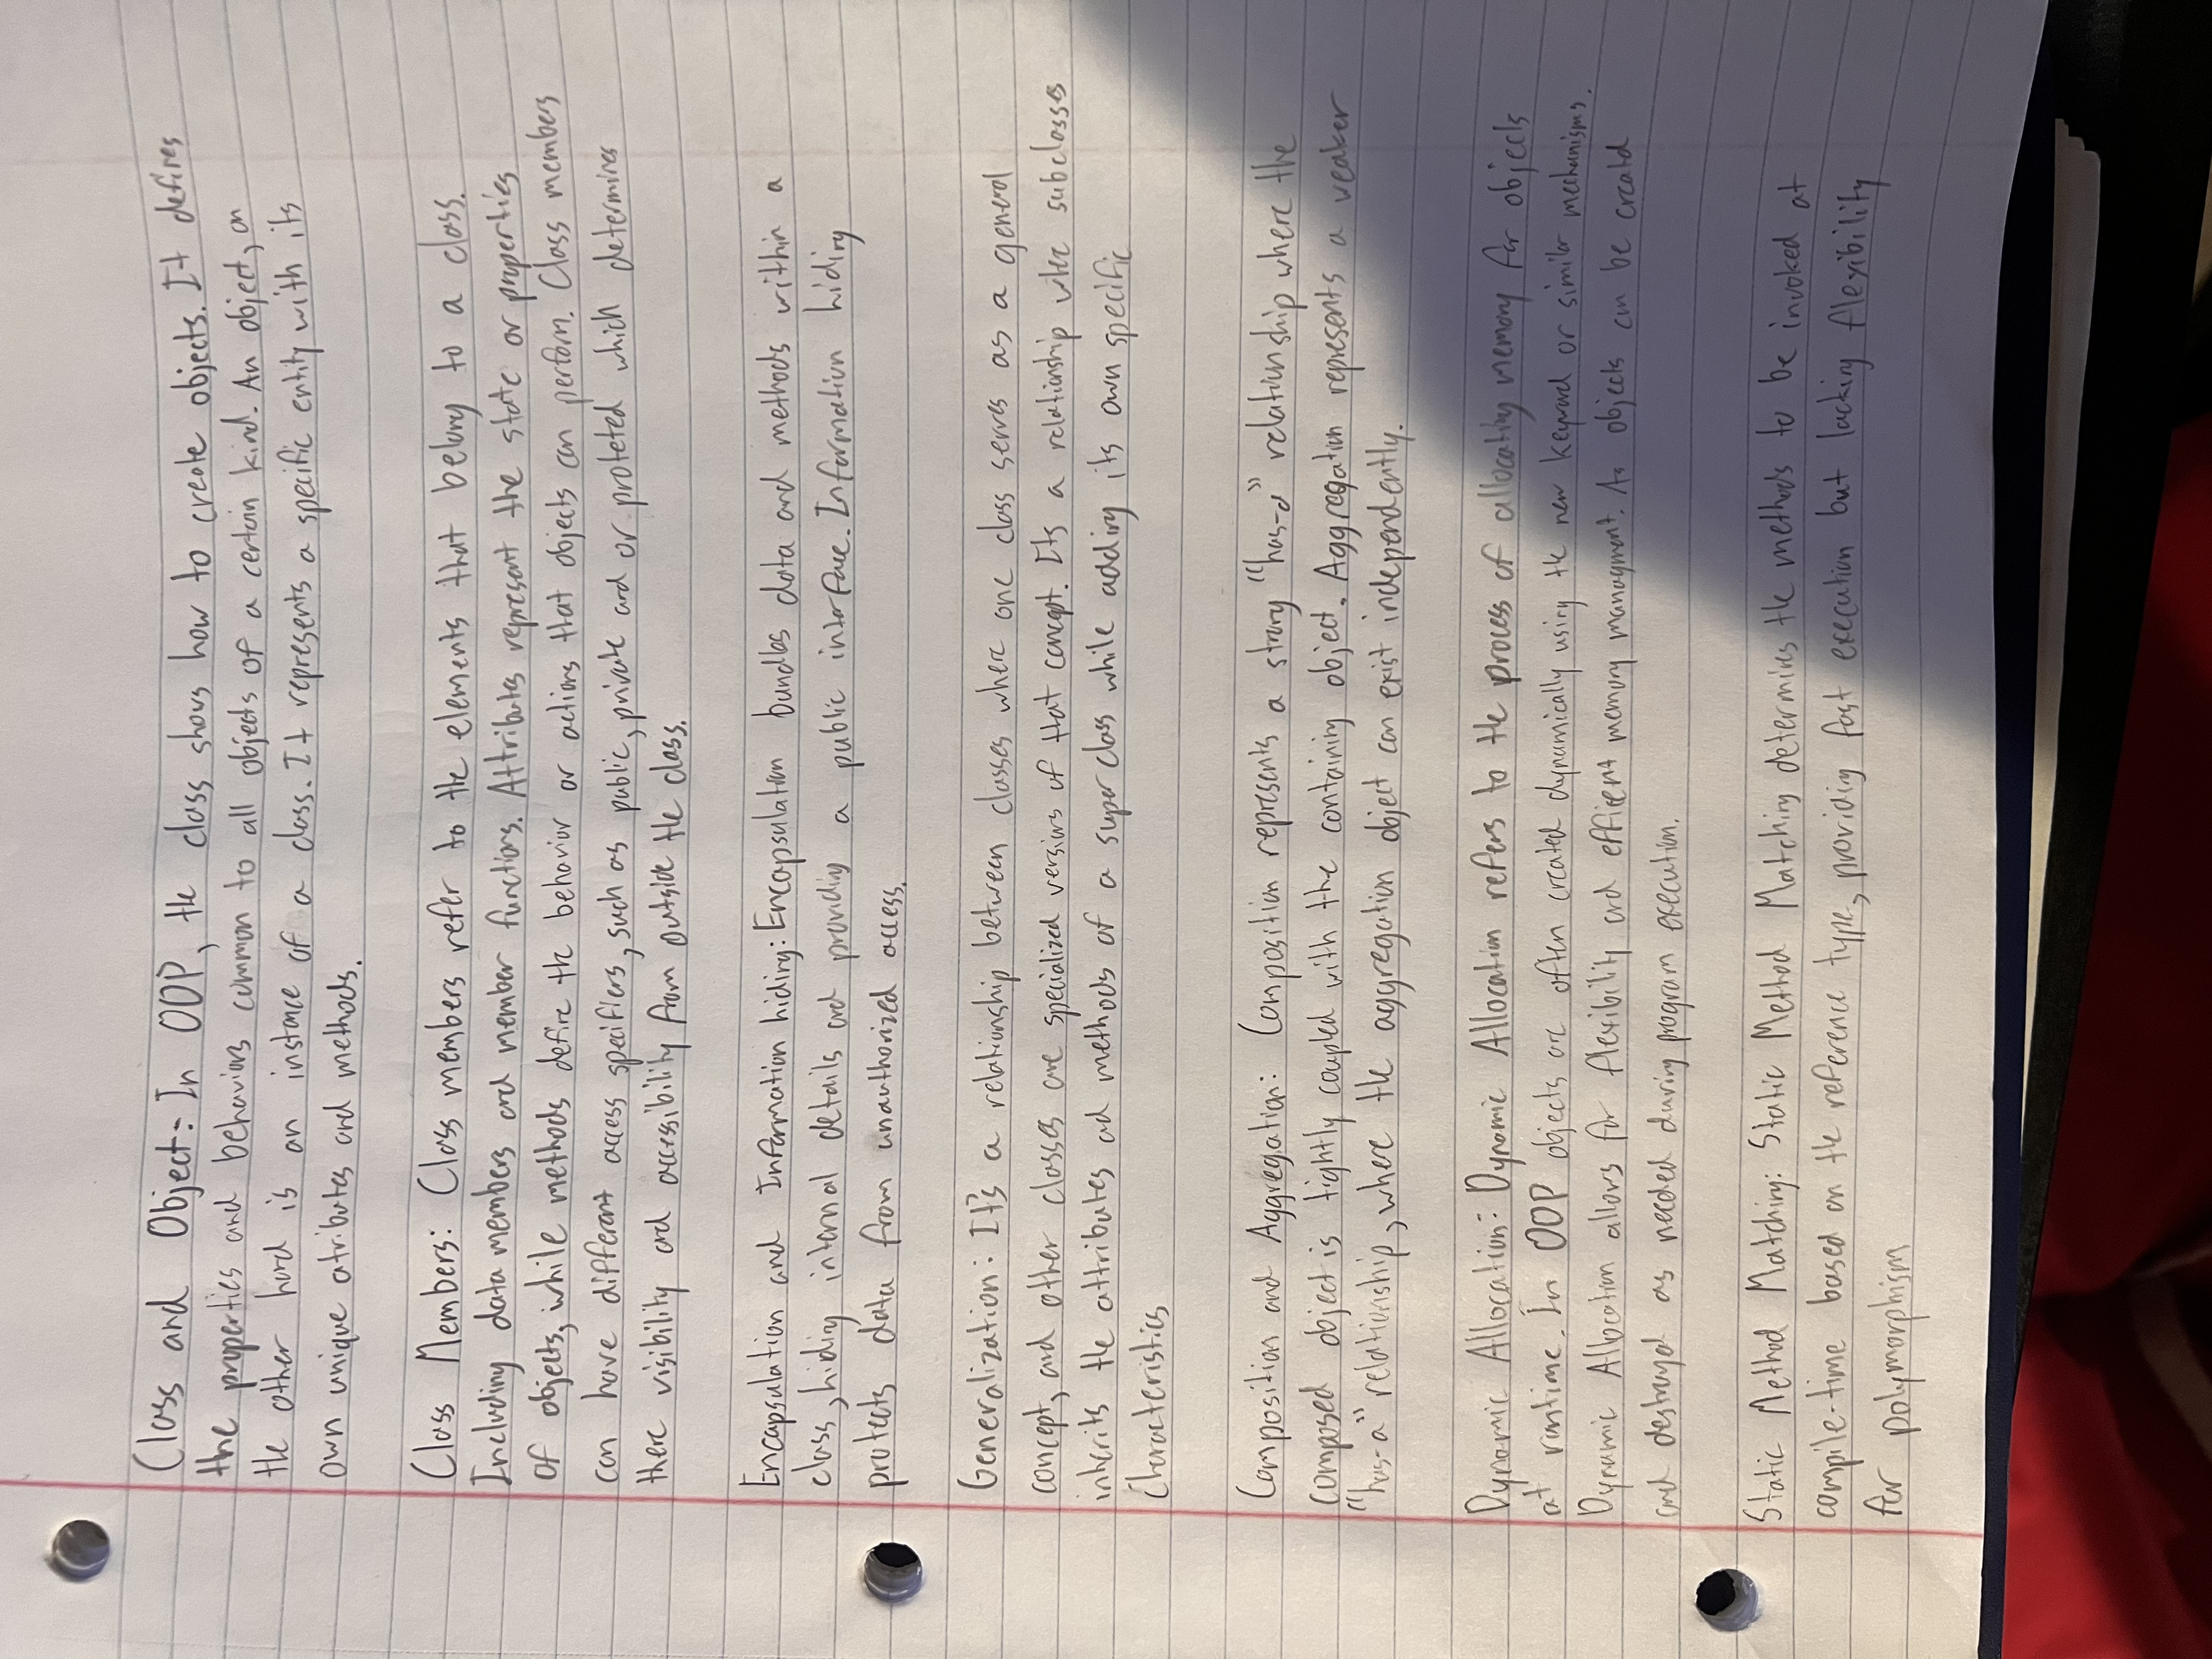 Class and Object: In OOP, the class shows how to create objects. It defines
the properties and behaviors common to all objects of a certain kind. An object, on
the other hand is an instance of a class. It represents a specific entity with its
own unique atributes and methods.
Class Members: Class members refer to the elements that belong to a class.
Including data members and member functions. Attributes represent the state or properties
of objects, while methods define the behavior or actions that objects can perform. Class members
can have different access specifiers, such as public, private and or proteted which determines
there visibility and accessibility from outside the class.
Encapsulation and Information hiding: Encapsulation bundles data and methods within a
class, hiding internal details and providing a public interface. Information hiding
protects data from unauthorized access.
Generalization: It's a relationship between classes where one class serves as a general
concept, and other classes are specialized versions of that concept. Its a relationship where subclasses
inherits the attributes and methods of a superclass while adding its own specific
Characteristics
Composition and Aggregation: Composition represents a strong "has-a" relationship where the
composed object is tightly coupled with the containing object. Aggregation represents a weaker
"has-a" relationship, where the aggregation object can exist independently.
Dynamic Allocation: Dynamic Allocation refers to the process of allocating memory for objects
at runtime. In OOP objects are often created dynamically using the new keyword or similar mechanisms.
Dynamic Allocation allows for flexibility and efficent memory managment. As objects can be created
and destroyed as needed during program execution.
Static Method Matching: Static Method Matching determines the methods to be invoked at
compile-time based on the reference type, providing fast execution but lacking flexibility
for polymorphism